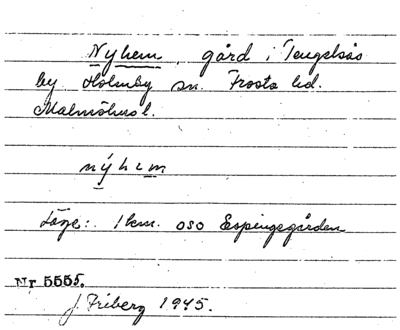 Nyhem, gård i Tengelsås
by Holmby sn. Frosta hd.
Malmöhus l.
nýhem
Läge: 1 km. oso Espingegården
Nr 5555.
J. Friberg 1945.